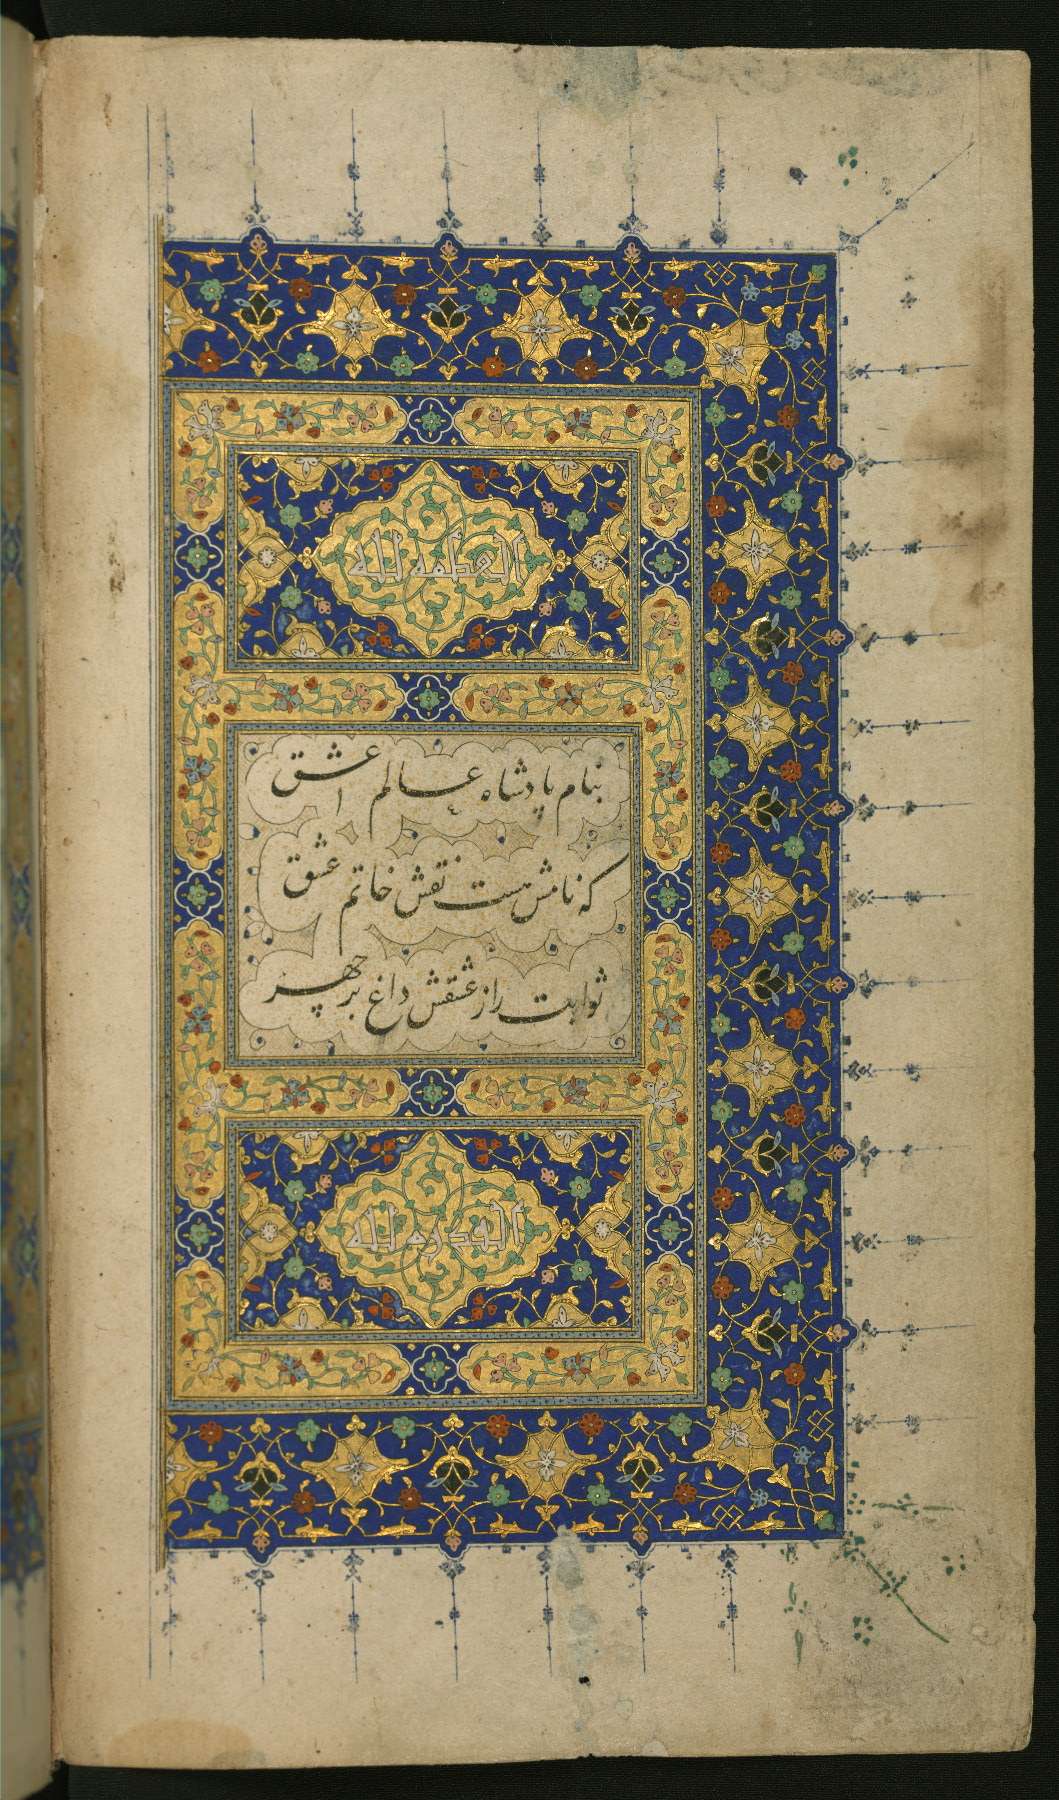 العظمة لله
بنام پادشاه عالم عشق
که نامش هست نقش خاتم عشق
ثوابت را ز عشقش داغ بر چهر
القدرة لله